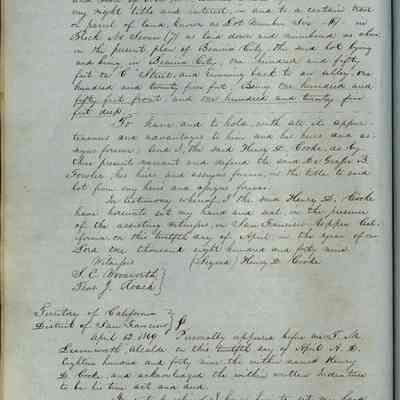 my right title and interest, in and to a certain tract
or parcel of land, known as Lot Number Six (6) in
Block No Seven (7) as laid down and numbered as above
in the present plan of Benicia City, the said lot lying
and being in Benicia City, one hundred and fifty
feet on C Street, and running back to an alley, one
hundred and twenty five feet, Being one hundred and
fifty feet front and one hundred and twenty five
feet deep.
To have and to hold, with all its appur-
tenances and advantages to him and his heirs and as-
signs forever. And I, the said Henry D. Cooke, do by
these present warrant and defend the said
Fowler, his heirs and assigns forever, in the title to said
lot from my heirs and assigns forever.
In testimony whereof I the said Henry D. Cooke
have hereunto set my hand and seal, in the presence
of the assisting witnesses, in San Francisco Upper Cal-
ifornia on this twelfth day of April in the year of our
Lord one thousand eight hundred and forty nine.
Witnesses (Signed) Henry D. Cooke
S. C. Woosworth
Thos J. Roach
Territory of California
District of San Francisco
April 12 1849 Personally appeared before me T. M.
Leavenworth, Alcalde on this twelfth day of April A. D.
Eighteen hundred and forty nine the within named Henry
D. Cooke, and acknowledged the within written Indenture
to be his true act and deed.